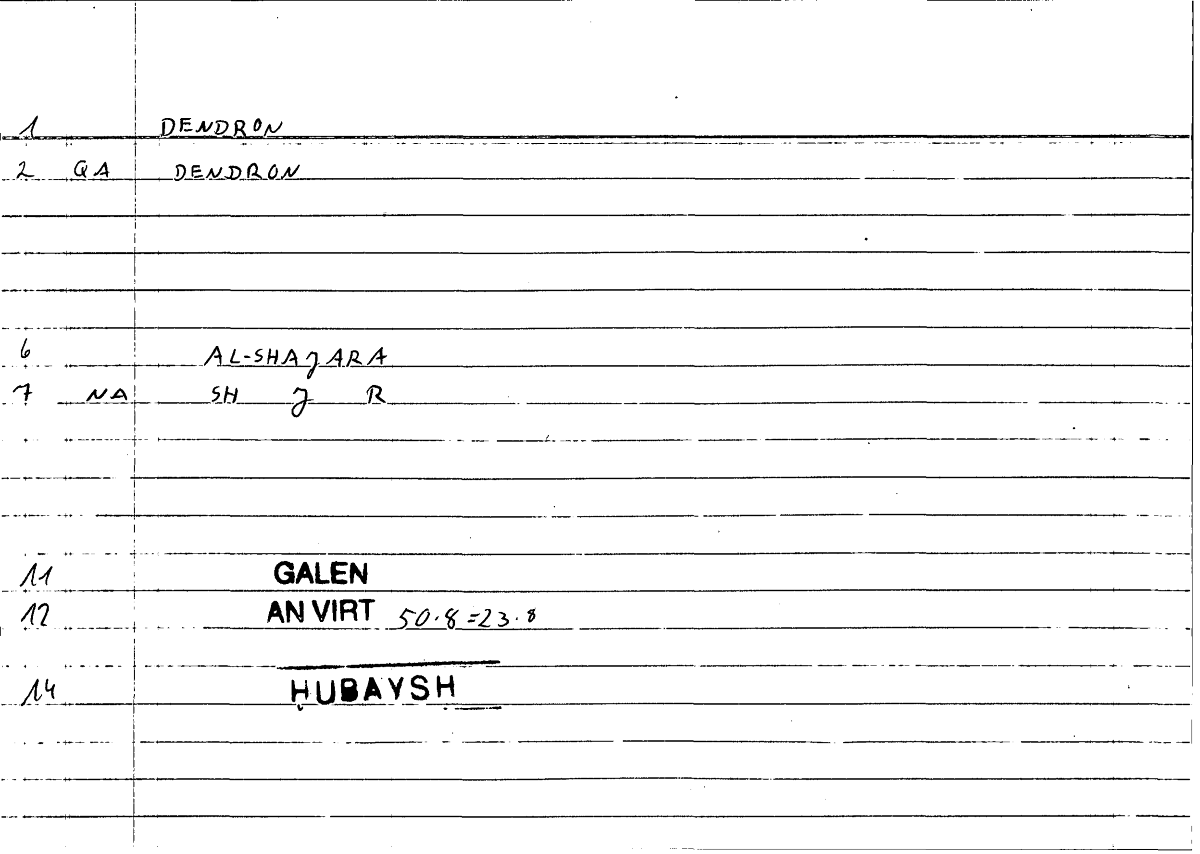 1 DENDRON
2 QA DENDRON
6 AL-SHAJARA
7 NA SH J R
11 GALEN
12 AN VIRT 50.8=23.8
14 ḤUBAYSH